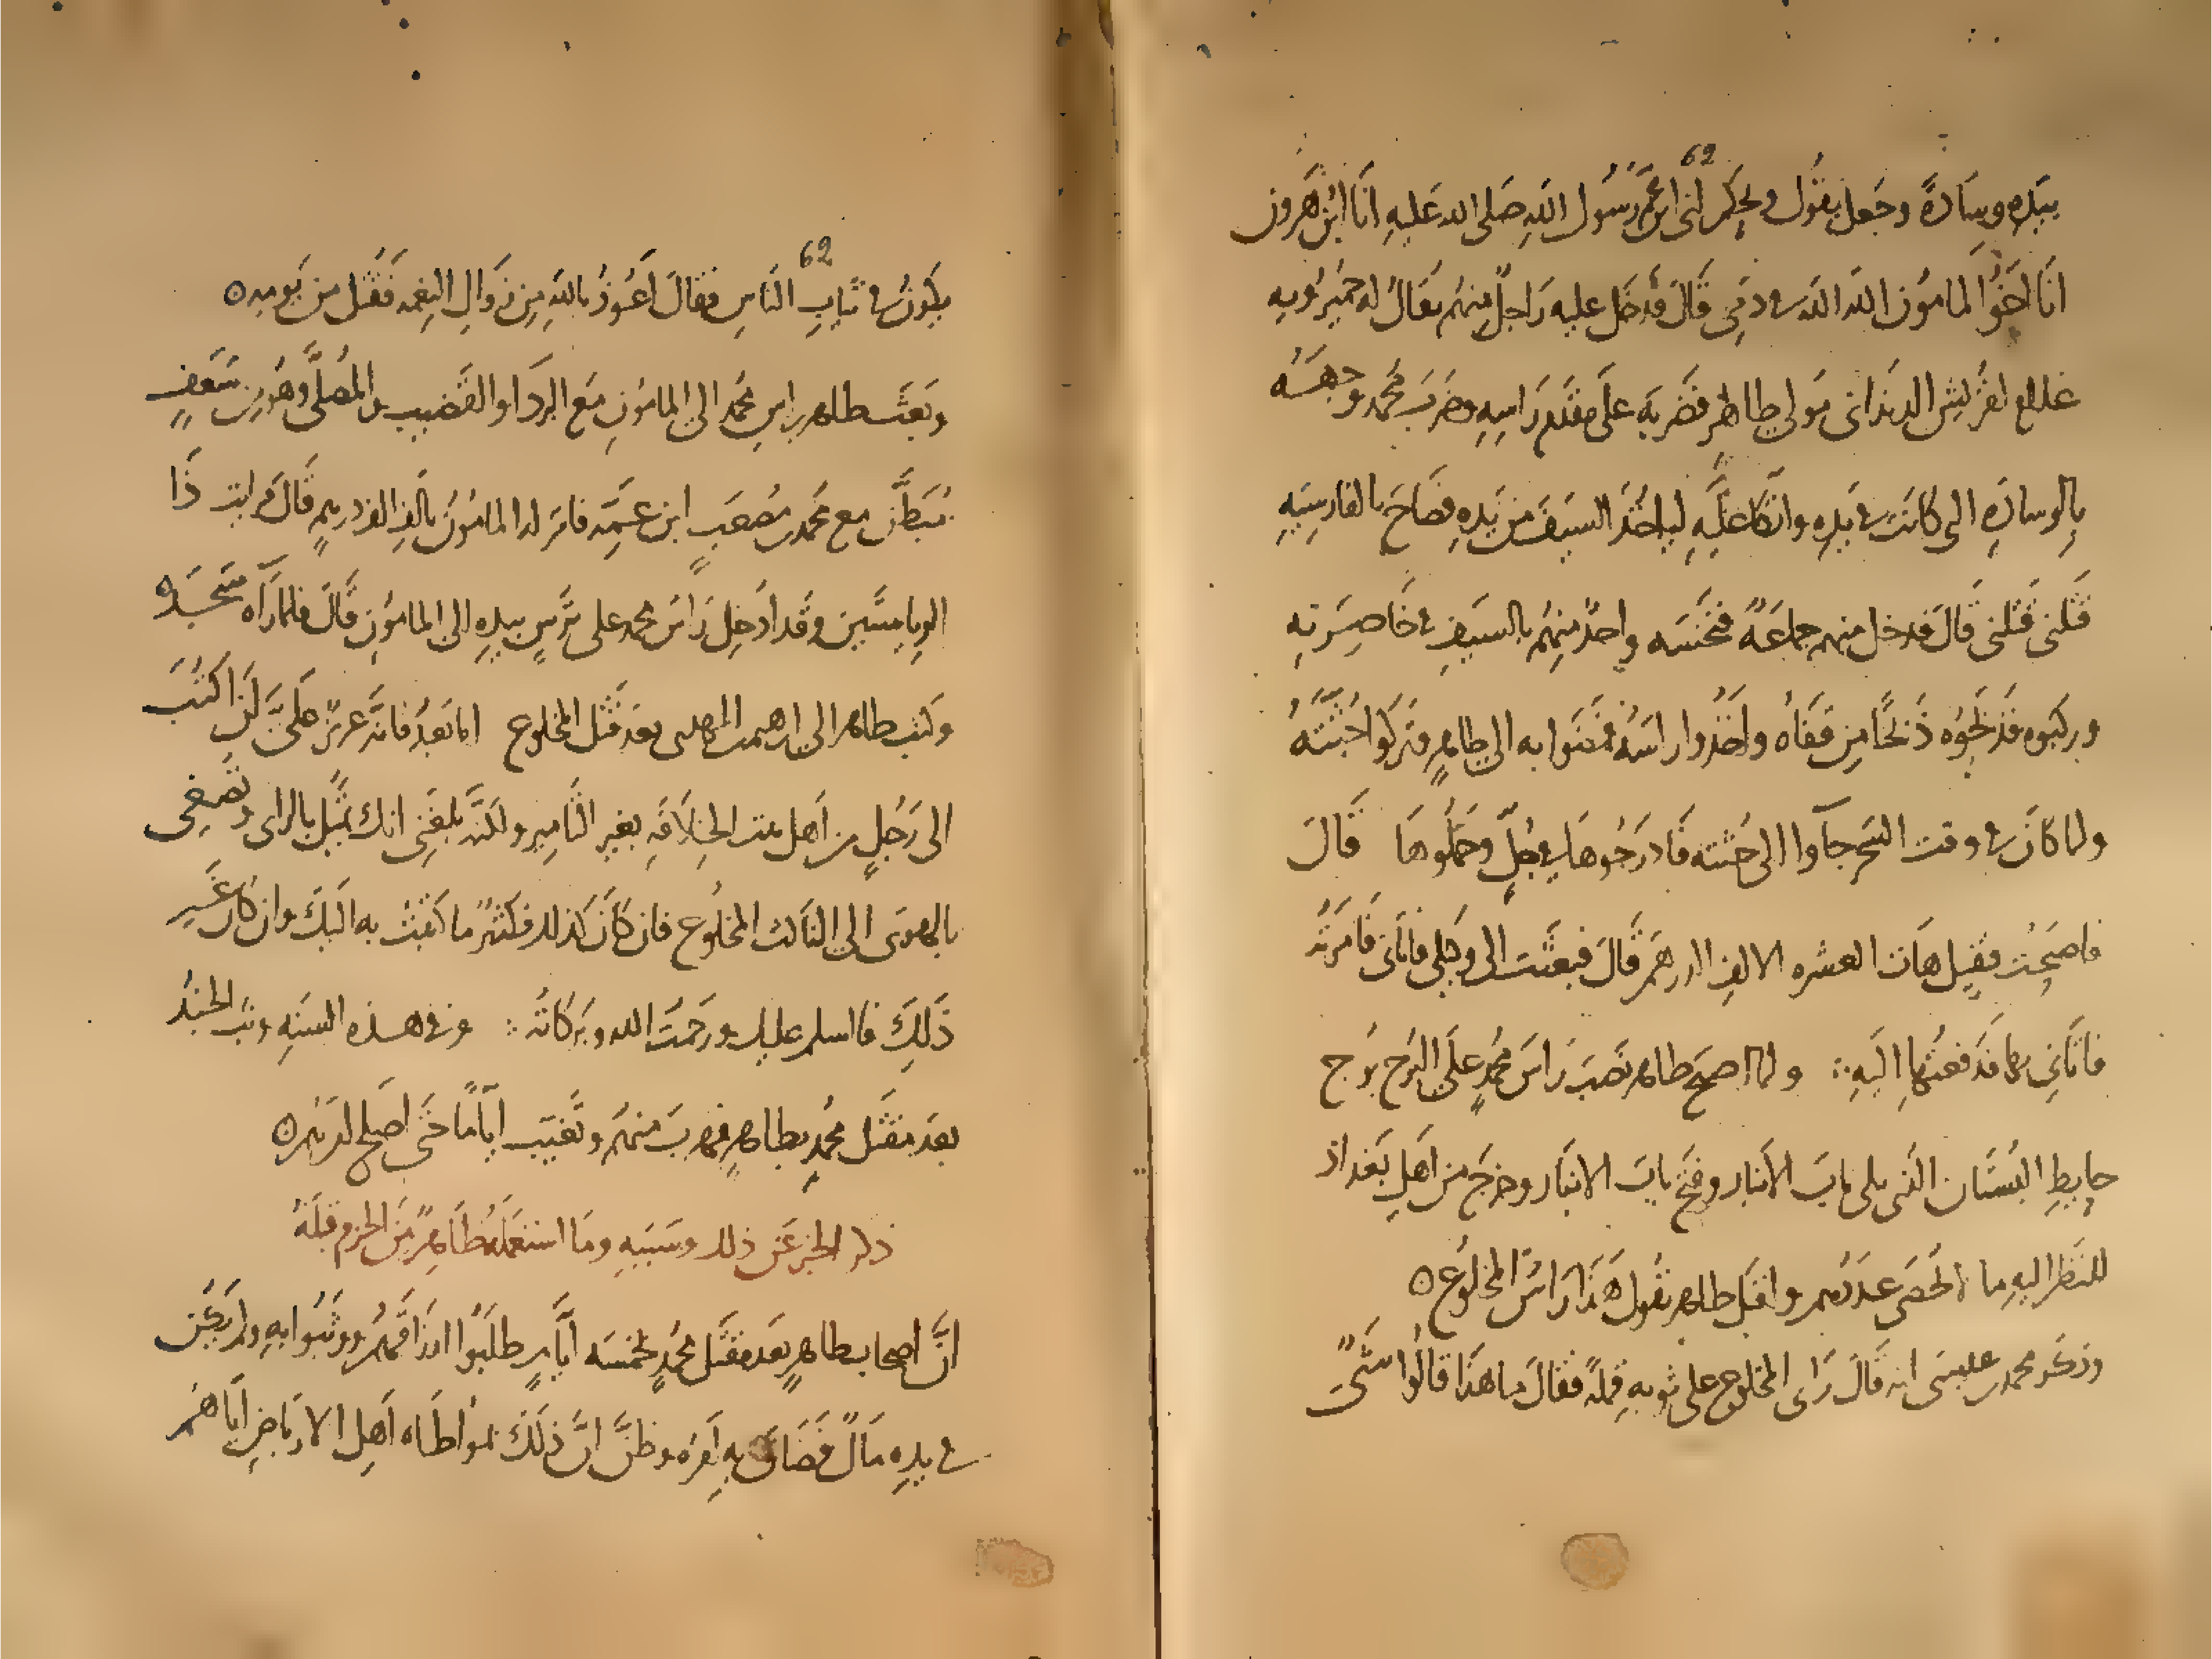 62
بيَدِهِ وِسَادَةً وجَعل يقُول ويحكم انى ابن عَمّ رَسُول اللَّهِ صَلى الله عَليهِ انَا ابْن هَرون
انَا اخُوا المامُون اللَّه اللَّه فى دَمِى قَالَ فدَخَل عليه رَاجلٌ مِنهُم يقَالُ له خميرَوَيه
غلام لقُرَيش الدندَانى مَولى طاهِر فضَربَه عَلَى مقدَم رَاسِهِ وضَربَ محَمد وجهَهُ
بِالوسادَةِ التى كانَت فى يَدِه واتَّكا عَلَيهِ لياخُذ السَيفَ من يَدِهِ فصَاحَ بالفارسِيَّهِ
قتَلنى قتَلنى قالَ فدخل منهم جماعَةٌ فنَخَسَه واحدٌ مِنهُم بالسَيفِ فى خَاصِرَتِهِ
وركبُوه فذبَحُوه ذَبحًا مِن قفَاهُ وَاخَذُوا راسَهُ فمضَوا به الى طاهِرٍ وتركوا جُثَّتَهُ
ولما كانَ فى وقت السَحَر جآوا الى جُثته فَادرَجُوهَا فى جُلٍّ وحَمَلُوهَا قَالَ
فاصبَحْت فقيل هَات العشره الالف الدرهَم قَالَ فبعَثت الى وكيلى فاتَانى فَامَرتُه
فاتَانِى بها فدَفعتُها اليَهِ ولما اصبح طاهر نصَبَ رَاسَ محُمدٍ عَلَى البُرج بُرج
حايِطِ البُستَان الذى يلى بابَ الأنبار وفتح بابَ الانبَار وخرَجَ من اهَلِ بغدَاد
للنَظَر اليهِ ما لا يُحصَى عدَدُهم واقبَل طاهر يقُول هَذا رَاسُ المخلُوع ه
وذكر محمد بن عيسَى انه قَالَ رَاى المخلوع على ثوبه قملَةً فقالَ ما هذَا قالُوا شَىٌ
62
يكونُ فى ثيَابِ النَاس فقالَ اعَوذُ باللهِ مِن زوَالِ النِعمه فقُتل من يَومِه ه
وبَعَثَ طاهر براسِ محُمد الى المامُونِ مَع البردَا والقَضيب والمصَلَّى وهُو من سَعَفٍ
مُبَطَّن مع محَمد بن مصْعَبٍ ابن عَمِّه فامَر له المامُونُ بالفِ الفِ درهمٍ قَالَ فرايت ذَا
الريِاستَين وقَد ادخل رَاسَ محمد على تُرسٍ بيدِهِ الى المامُونِ قَالَ فلمّا رَآه سَجَدَ ه
وكتب طاهر الى ابرهيم بن المهدى بعَد قَتْل المخلوع امّا بَعدُ فانَّه عزيزٌ عَلَىَّ اَن اكتُبَ
الى رَجُلٍ من اَهل بيت الخِلاَفَهِ بغيرِ التَامير ولكنَّه بلغَنِى انك تَميل بالراى وتُصغِى
بالهَوَى الى الناكث المخلُوع فان كانَ كذلك فكثيرٌ ما كتَبتُ به اليكَ وان كان غَير
ذَلِكَ فالسلم عليك ورَحمَت الله وبرَكاتُه وفى هذه السَنَهِ وثَبَ الجندُ
بعَد مَقتَل محُمدٍ بطاهِرٍ فهربَ منهُم وتَغيَّب ايّامًا حَتى اصلح امرَهم ه
ذكر الخبَر عَن ذلك وسَبَبِهِ ومَا استَعمَلَه طَاهِرٌ مَن الحزم قِبلَهُ
انَّ اصحاب طاهِرٍ بَعد مَقتَل محُمدٍ بخمسَه ايَّامٍ طلَبُوا ارزَاقهُم ووثَبُوا بهِ ولم يكن
فى يدِه مَالٌ فضَاقَ بهِ اَمرُه وظنَّ انَّ ذلَكَ لموَاطَاه اَهلِ الارباضِ ايّاهُم